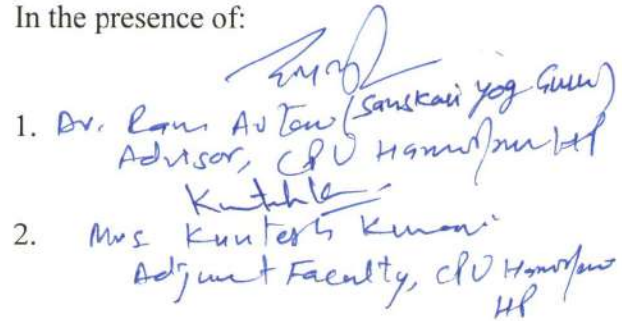 In the presence of:
1. Dr. Ram Avtar (Sanskari yog Guru)
Advisor, CPU Hamirpur HP
2. Mrs Kuntesh Kumari
Adjunct Faculty, CPU Hamirpur
HP